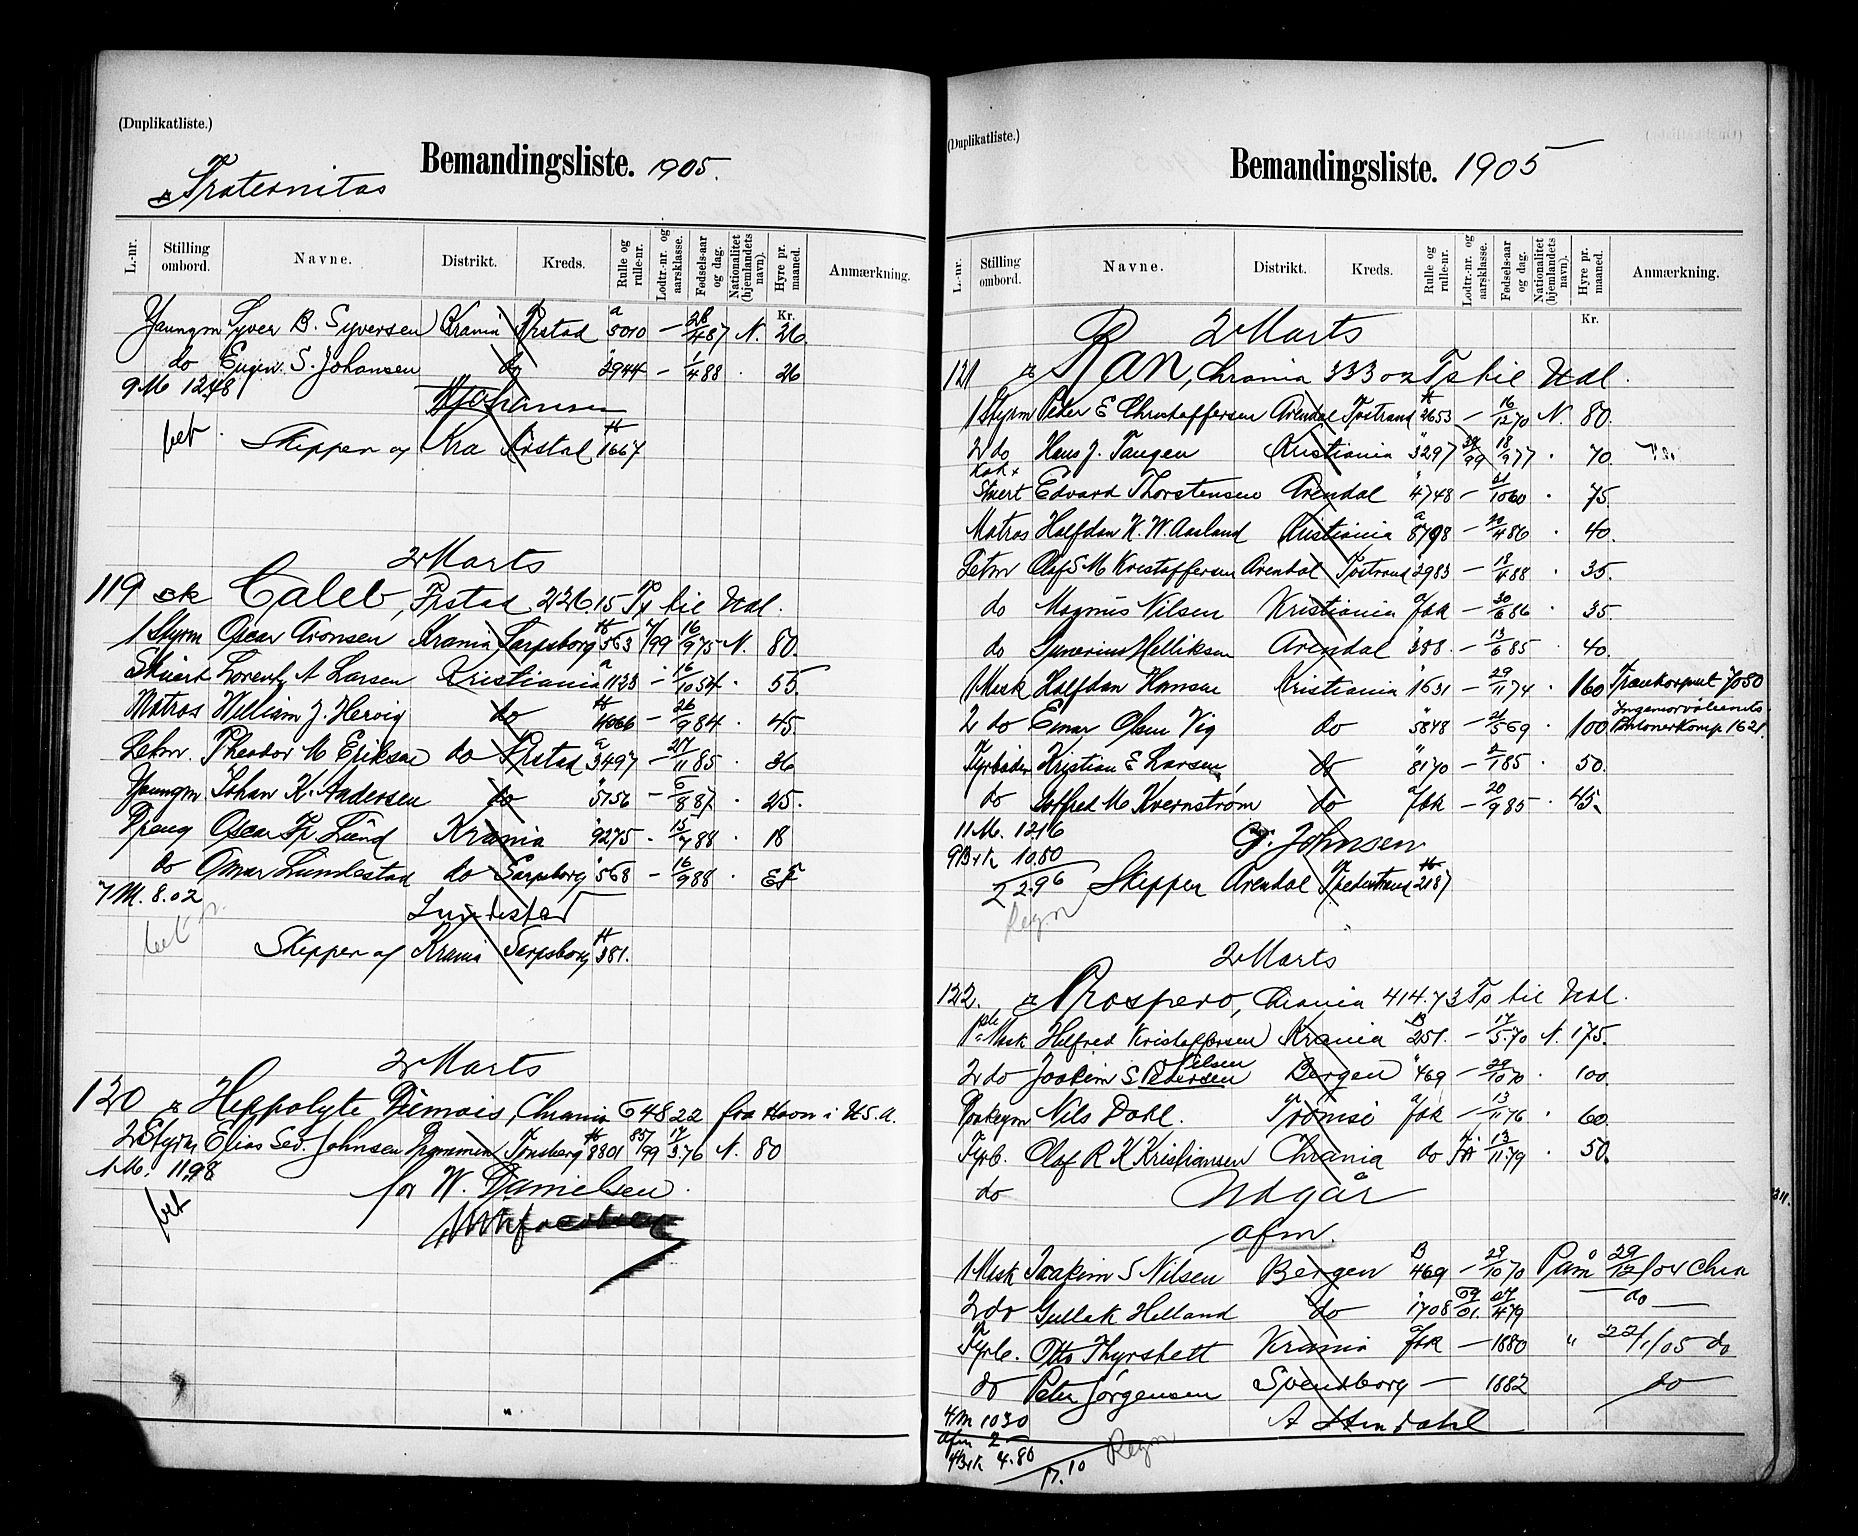 (Duplikatliste.)
Bemandingsliste. 1905.
Fraternitas
L.-nr. Stilling ombord. Navne. Distrikt. Kreds. Rulle og rulle-nr. Lodtr.-nr. og aarsklasse. Fødsels-aar og dag. Nationalitet (hjemlandets navn). Hyre pr. maaned. Anmærkning.
Kr.
Youngm Syver B. Syversen Krania Frstad a 5010 – 28/4 87 N. 26
do Eugen. S. Johansen do " 2944 – 1/4 88 . 26
9 M 12.48
Johansen
bet. Skipper af Kra Frstad H 1667
2 Marts
119 sk Caleb, Frstad 226.15 Tp til Udl.
1 Styrm Oscar Aronsen Krania Sarpsborg H 563 /99 16/9 75 N. 80.
Stuert Lorentz A Larsen Kristiania a 1123 – 16/10 54 . 55.
Matros William J. Hervig do H 4066 – 26/9 84 . 45.
Letm. Theodor M Eriksen do Frstad a 3497 – 27/11 85 . 36
Youngm Johan K. Andersen do " 5756 – 6/8 87 . 25.
Dreng Oscar Fr Lund Krania " 9275 . 15/7 88 . 18
do Omar Lundestad do Sarpsborg " 568 – 16/9 88 .
7 M. 8.02
Lundestad
bet
Skipper af Krania Sarpsborg H 381.
2 Marts
120 Hippolyte Dumois, Chrania 648.22 fra Havn i U.S.A.
2 Styrm Elias Sev. Johnsen Drammen Tønsberg H 8801 85/99 17/3 76 N. 80
1 M. 1.98
bet for W. Danielsen.

(Duplikatliste.)
Bemandingsliste. 1905
L.-nr. Stilling ombord. Navne. Distrikt. Kreds. Rulle og rulle-nr. Lodtr.-nr. og aarsklasse. Fødsels-aar og dag. Nationalitet (hjemlandets navn). Hyre pr. maaned. Anmærkning.
Kr.
2 Marts
121 Ran, Chrania 333.02 Tp til Udl.
1 Styrm Peder E Christoffersen Arendal Tvstrand H 2653 – 16/12 70 N. 80.
2 do Hans J. Tangen Kristiania " 3297 39/99 18/9 77 . 70.
Kok + Stuert Edvard Thorstensen Arendal " 4748 – 21/10 60 . 75
Matros Halfdan K. W. Aasland Kristiania a 8798 – 20/4 86 . 40.
Letm Olaf S M Kristoffersen Arendal Tvstrand " 2983 – 18/4 88 . 35.
do Magnus Nilsen Kristiania afbk – 30/6 86 . 35.
do Helliksen Arendal " 388. – 13/6 85 . 40.
1 Mesk Halfdan Hansen Kristiania " 1631 – 29/11 74 . 160 7050
2 do Einar Olsen Vig do " 5848 – 21/5 69 . 100 Ingeniørvåbenets Pontonerkomp 1621.
Fyrbøder Kristian E Larsen do " 8170 – 2/1 85 . 50.
do M Kvernstrøm do afbk – 20/9 85 . 45.
11 M. 12.16
9 B+k 10.80
22.96
G. Johnsen
Skipper Arendal H 2187
Regn
2 Marts
122. Prospero, Chrania 414.73 Tp til Udl.
1ste Mesk Hilfred Kristoffersen Krania B 251. – 17/5 70 N. 175.
2 do Joakim S Pedersen Nilsen Bergen " 469 – 29/10 70 . 100
Donkeym Nils Dahl. Tromsø afbk – 13/11 76 . 60
Fyrb. Olaf R K Kristiansen Chrania do – 13/11 79 . 50.
do Udgår
afm.
1 Mesk Joakim S Nilsen Bergen B 469 – 29/10 70 Påm 29/12/04 Chra
2 do Gullak Helland do " 1708 69/01. 27/4 79 — do —
Fyrb. Otto Thyrstett Krania afbk – 1880 " 22/1/05 do
do Peter Jørgensen Svendborg – 1882 do
4 M 10.30
afm 2 –
4 B+k 4.80
17.10
A Stendahl
Regn